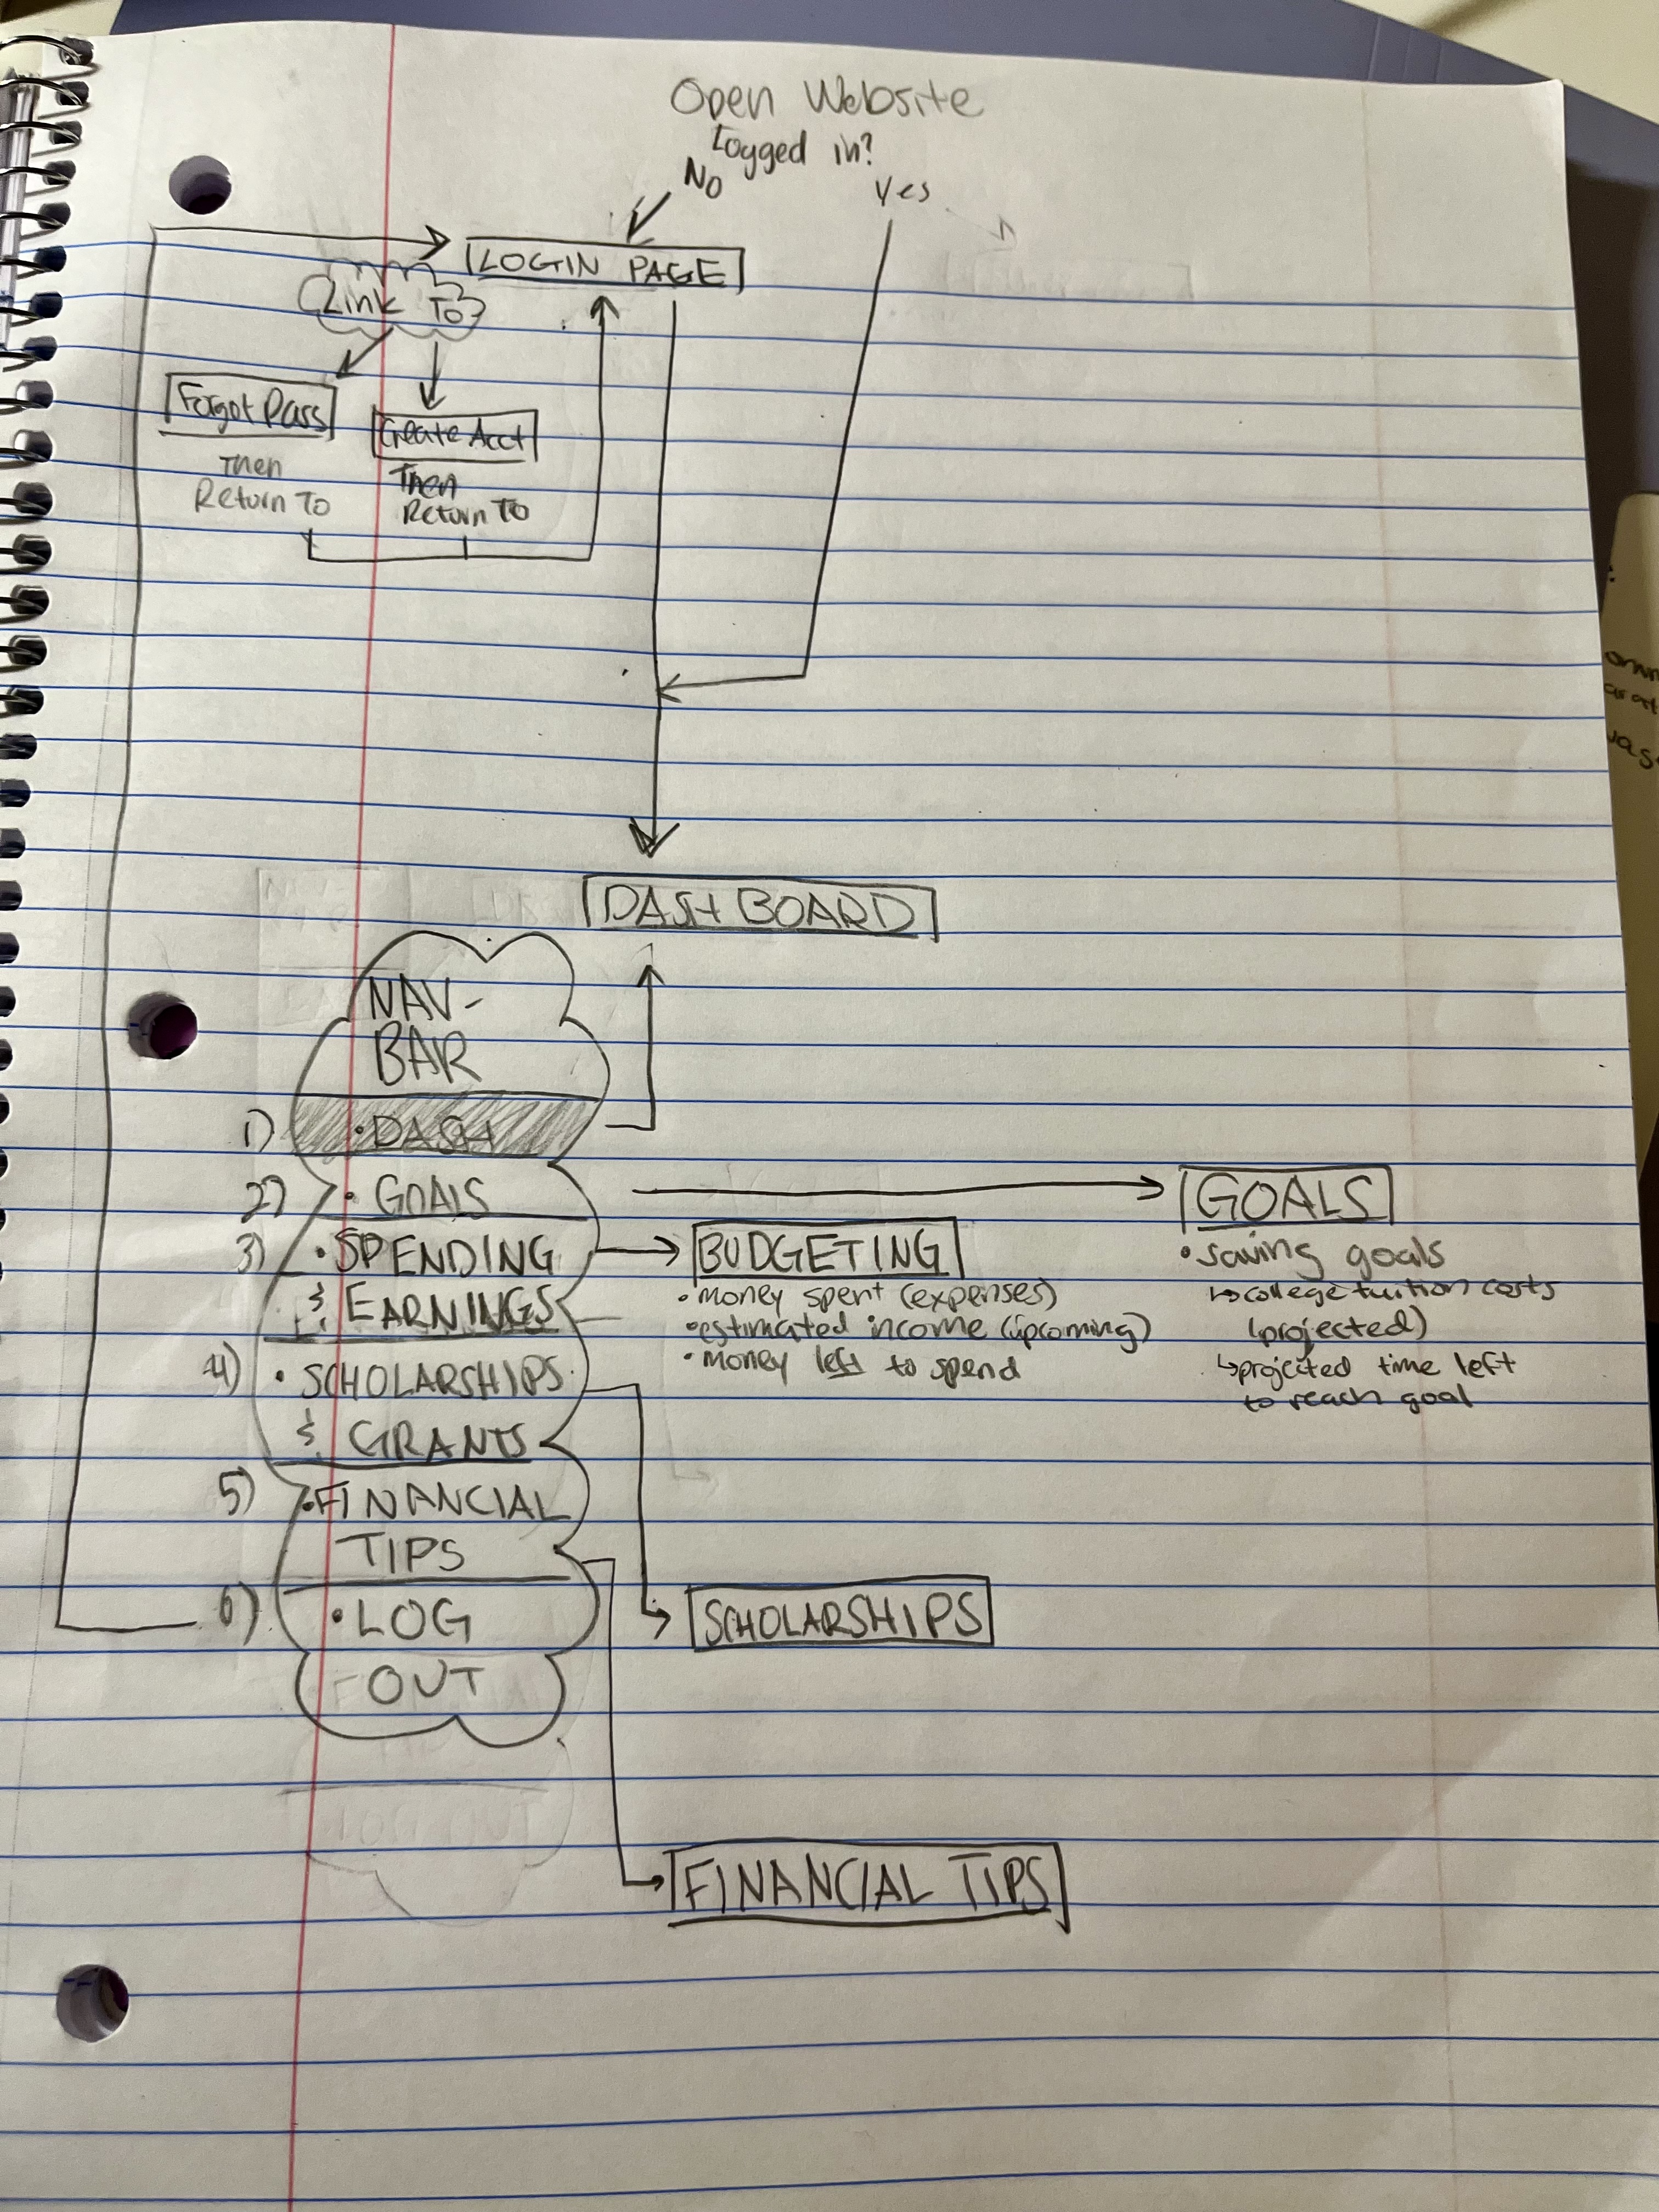 Open Website
Logged in?
No
Yes
LOGIN PAGE
Link To
Forgot Pass
Create Acct
Then
Return To
Then
Return To
DASHBOARD
NAV-
BAR
1) • DASH
2) • GOALS
GOALS
• saving goals
↳ college tuition costs
(projected)
↳ projected time left
to reach goal
3) • SPENDING
& EARNINGS
BUDGETING
• money spent (expenses)
• estimated income (upcoming)
• money left to spend
4) • SCHOLARSHIPS
& GRANTS
5) • FINANCIAL
TIPS
6) • LOG
OUT
SCHOLARSHIPS
FINANCIAL TIPS